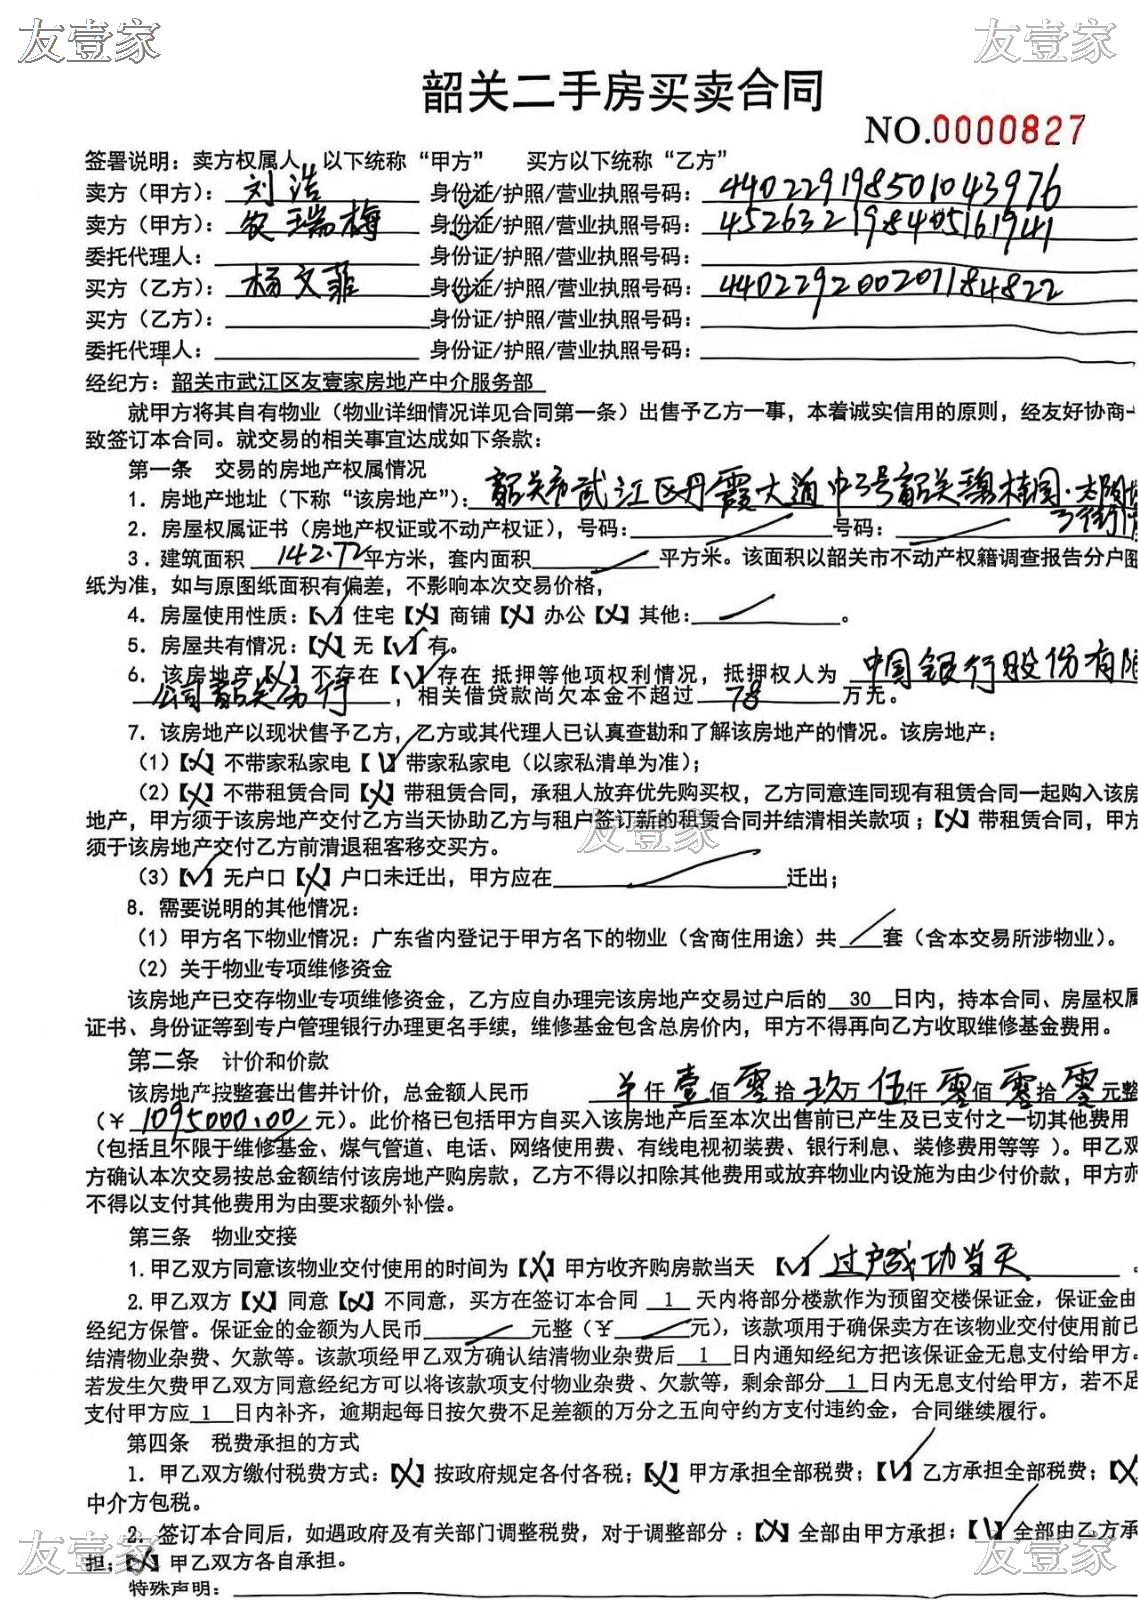 友壹家 友壹家
韶关二手房买卖合同
NO.0000827
签署说明：卖方权属人，以下统称“甲方” 买方以下统称“乙方”
卖方（甲方）：刘浩 身份证/护照/营业执照号码：440229198501043976
卖方（甲方）：农瑞梅 身份证/护照/营业执照号码：452632198405161941
委托代理人： 身份证/护照/营业执照号码：
买方（乙方）：杨文菲 身份证/护照/营业执照号码：440229200207184822
买方（乙方）： 身份证/护照/营业执照号码：
委托代理人： 身份证/护照/营业执照号码：
经纪方：韶关市武江区友壹家房地产中介服务部
就甲方将其自有物业（物业详细情况详见合同第一条）出售予乙方一事，本着诚实信用的原则，经友好协商一
致签订本合同。就交易的相关事宜达成如下条款：
第一条 交易的房地产权属情况
1. 房地产地址（下称“该房地产”）：韶关市武江区丹霞大道中3号韶关碧桂园·太阳城
3街
2. 房屋权属证书（房地产权证或不动产权证），号码： 号码：
3. 建筑面积 142.72 平方米，套内面积 平方米。该面积以韶关市不动产权籍调查报告分户图
纸为准，如与原图纸面积有偏差，不影响本次交易价格，
4. 房屋使用性质：【√】住宅【X】商铺【X】办公【X】其他： 。
5. 房屋共有情况：【X】无【√】有。
6. 该房地产【X】不存在【√】存在 抵押等他项权利情况，抵押权人为 中国银行股份有限
公司韶关分行，相关借贷款尚欠本金不超过 78 万元。
7. 该房地产以现状售予乙方，乙方或其代理人已认真查勘和了解该房地产的情况。该房地产：
（1）【X】不带家私家电【√】带家私家电（以家私清单为准）；
（2）【X】不带租赁合同【X】带租赁合同，承租人放弃优先购买权，乙方同意连同现有租赁合同一起购入该房
地产，甲方须于该房地产交付乙方当天协助乙方与租户签订新的租赁合同并结清相关款项；【X】带租赁合同，甲方
友壹家
须于该房地产交付乙方前清退租客移交买方。
（3）【√】无户口【X】户口未迁出，甲方应在 迁出；
8. 需要说明的其他情况：
（1）甲方名下物业情况：广东省内登记于甲方名下的物业（含商住用途）共 套（含本交易所涉物业）。
（2）关于物业专项维修资金
该房地产已交存物业专项维修资金，乙方应自办理完该房地产交易过户后的 30 日内，持本合同、房屋权属
证书、身份证等到专户管理银行办理更名手续，维修基金包含总房价内，甲方不得再向乙方收取维修基金费用。
第二条 计价和价款
该房地产按整套出售并计价，总金额人民币 ￥仟壹佰零拾玖万伍仟零佰零拾零元整
（￥1095000.00元）。此价格已包括甲方自买入该房地产后至本次出售前已产生及已支付之一切其他费用
（包括且不限于维修基金、煤气管道、电话、网络使用费、有线电视初装费、银行利息、装修费用等等）。甲乙双
方确认本次交易按总金额结付该房地产购房款，乙方不得以扣除其他费用或放弃物业内设施为由少付价款，甲方亦
不得以支付其他费用为由要求额外补偿。
第三条 物业交接
1. 甲乙双方同意该物业交付使用的时间为【X】甲方收齐购房款当天 【√】过户成功当天 。
2. 甲乙双方【X】同意【X】不同意，买方在签订本合同 1 天内将部分楼款作为预留交楼保证金，保证金由
经纪方保管。保证金的金额为人民币 元整（￥ 元），该款项用于确保卖方在该物业交付使用前已
结清物业杂费、欠款等。该款项经甲乙双方确认结清物业杂费后 1 日内通知经纪方把该保证金无息支付给甲方。
若发生欠费甲乙双方同意经纪方可以将该款项支付物业杂费、欠款等，剩余部分 1 日内无息支付给甲方，若不足
支付甲方应 1 日内补齐，逾期起每日按欠费不足差额的万分之五向守约方支付违约金，合同继续履行。
第四条 税费承担的方式
1. 甲乙双方缴付税费方式：【X】按政府规定各付各税；【X】甲方承担全部税费；【√】乙方承担全部税费；【X】
中介方包税。
2. 签订本合同后，如遇政府及有关部门调整税费，对于调整部分：【X】全部由甲方承担；【√】全部由乙方承
担；【X】甲乙双方各自承担。
友壹家 友壹家
特殊声明：